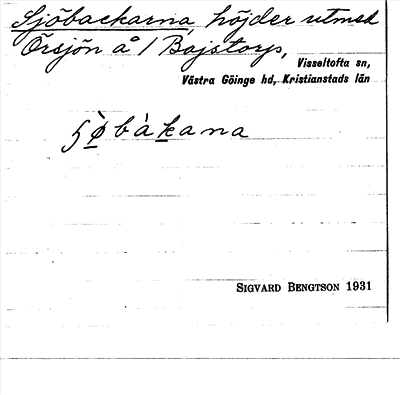 Sjöbackarna, höjder utmed
Örsjön å / Bajstorp,
Visseltofta sn,
Västra Göinge hd, Kristianstads län
ʃø̀bàkana
SIGVARD BENGTSON 1931